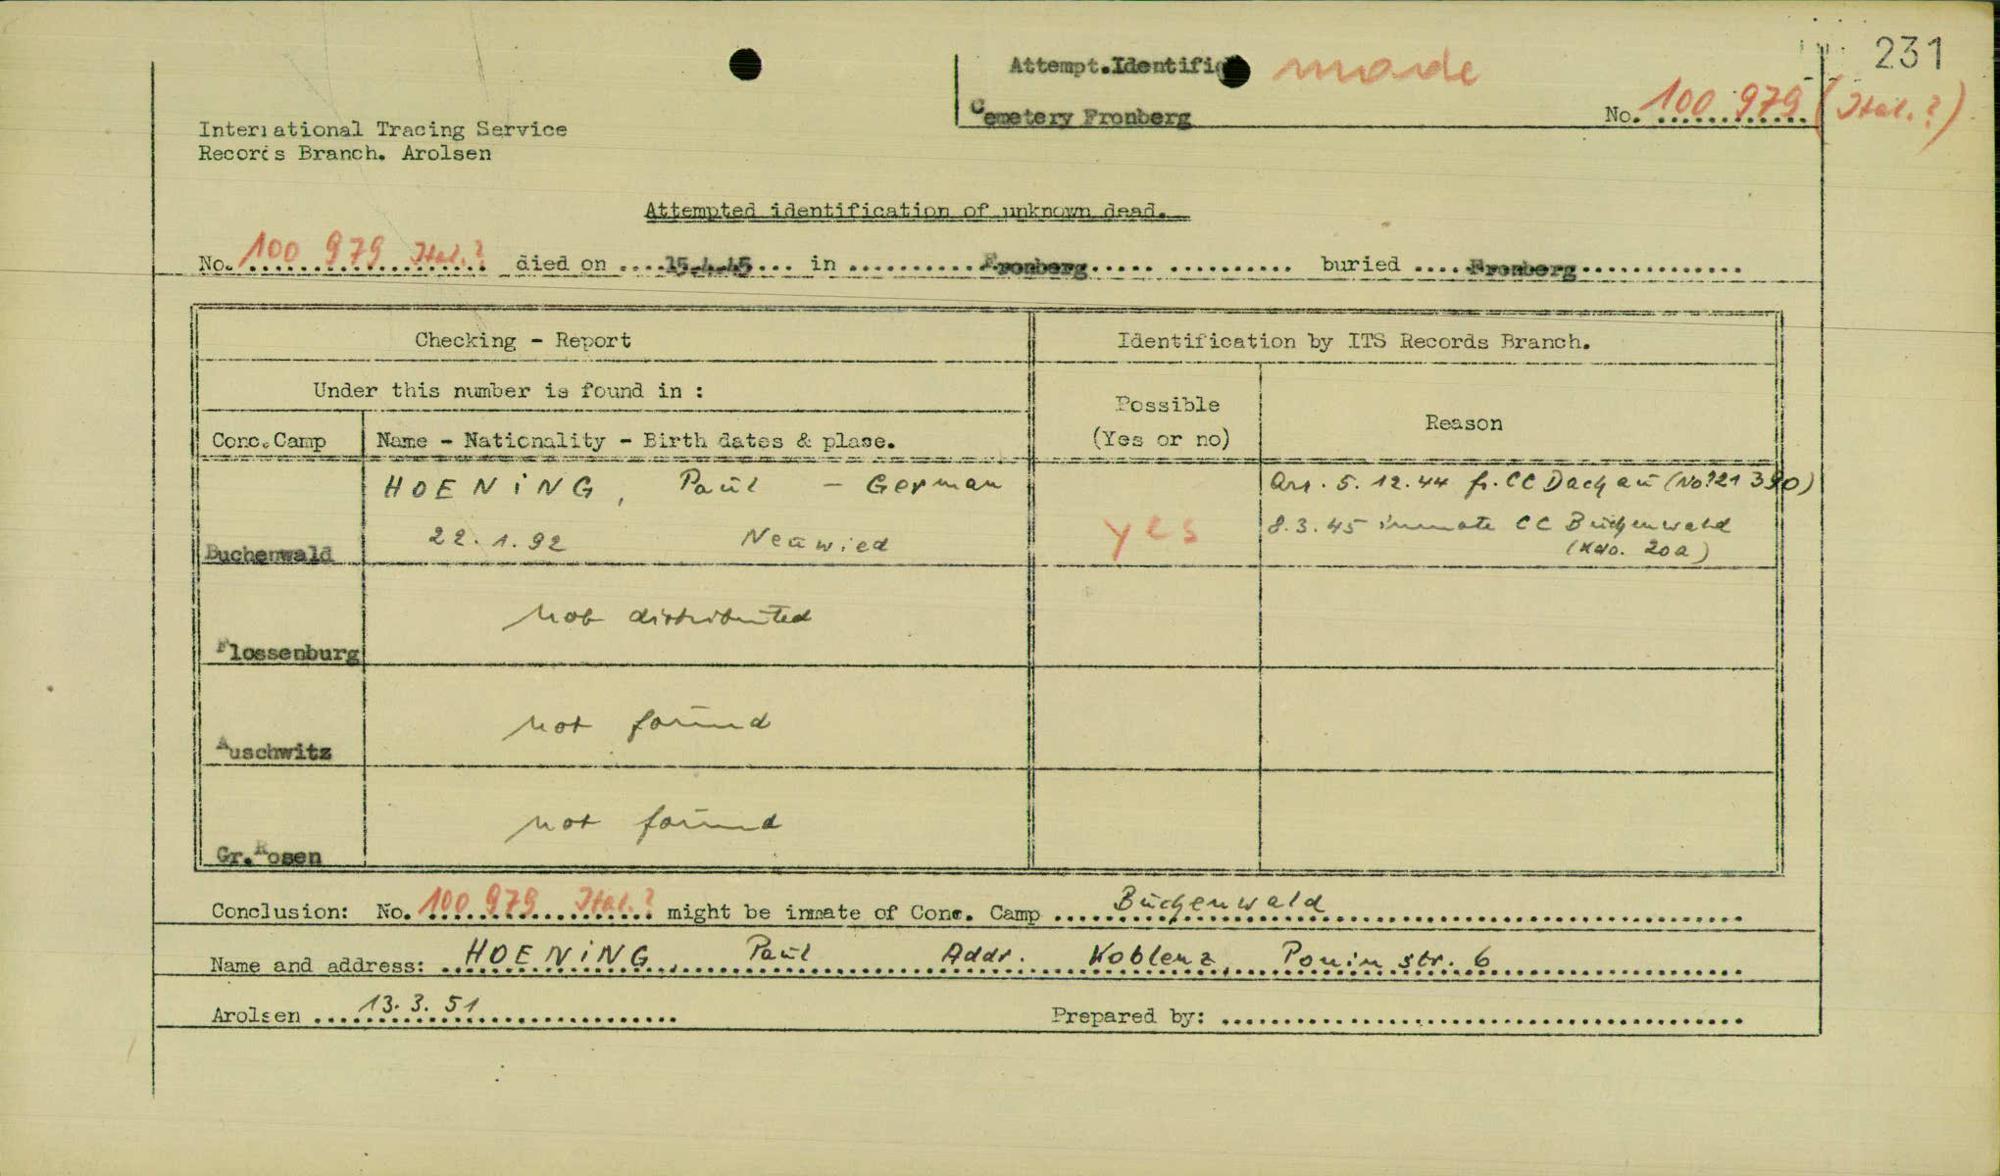 231
Attempt.Identific made
Cemetery Fronberg
No. 100 979 (Ital.?)
International Tracing Service
Records Branch. Arolsen
Attempted identification of unknown dead.
No. 100 979 Ital.? died on 15.4.45 in Fronberg buried Fronberg
Checking - Report
Identification by ITS Records Branch.
Under this number is found in :
Possible
(Yes or no)
Reason
Conc.Camp
Name - Nationality - Birth dates & plase.
HOENING, Paul - German
22.1.92 Neuwied
Buchenwald
yes
Arr. 5.12.44 fr. CC Dachau (No. 121 390)
8.3.45 inmate CC Buchenwald
(Kdo. 20a)
not distributed
Flossenburg
not found
Auschwitz
not found
Gr.Rosen
Conclusion: No. 100 979 Ital.? might be inmate of Conc. Camp Buchenwald
Name and address: HOENING, Paul Addr. Koblenz, str. 6
Arolsen 13.3.51
Prepared by: